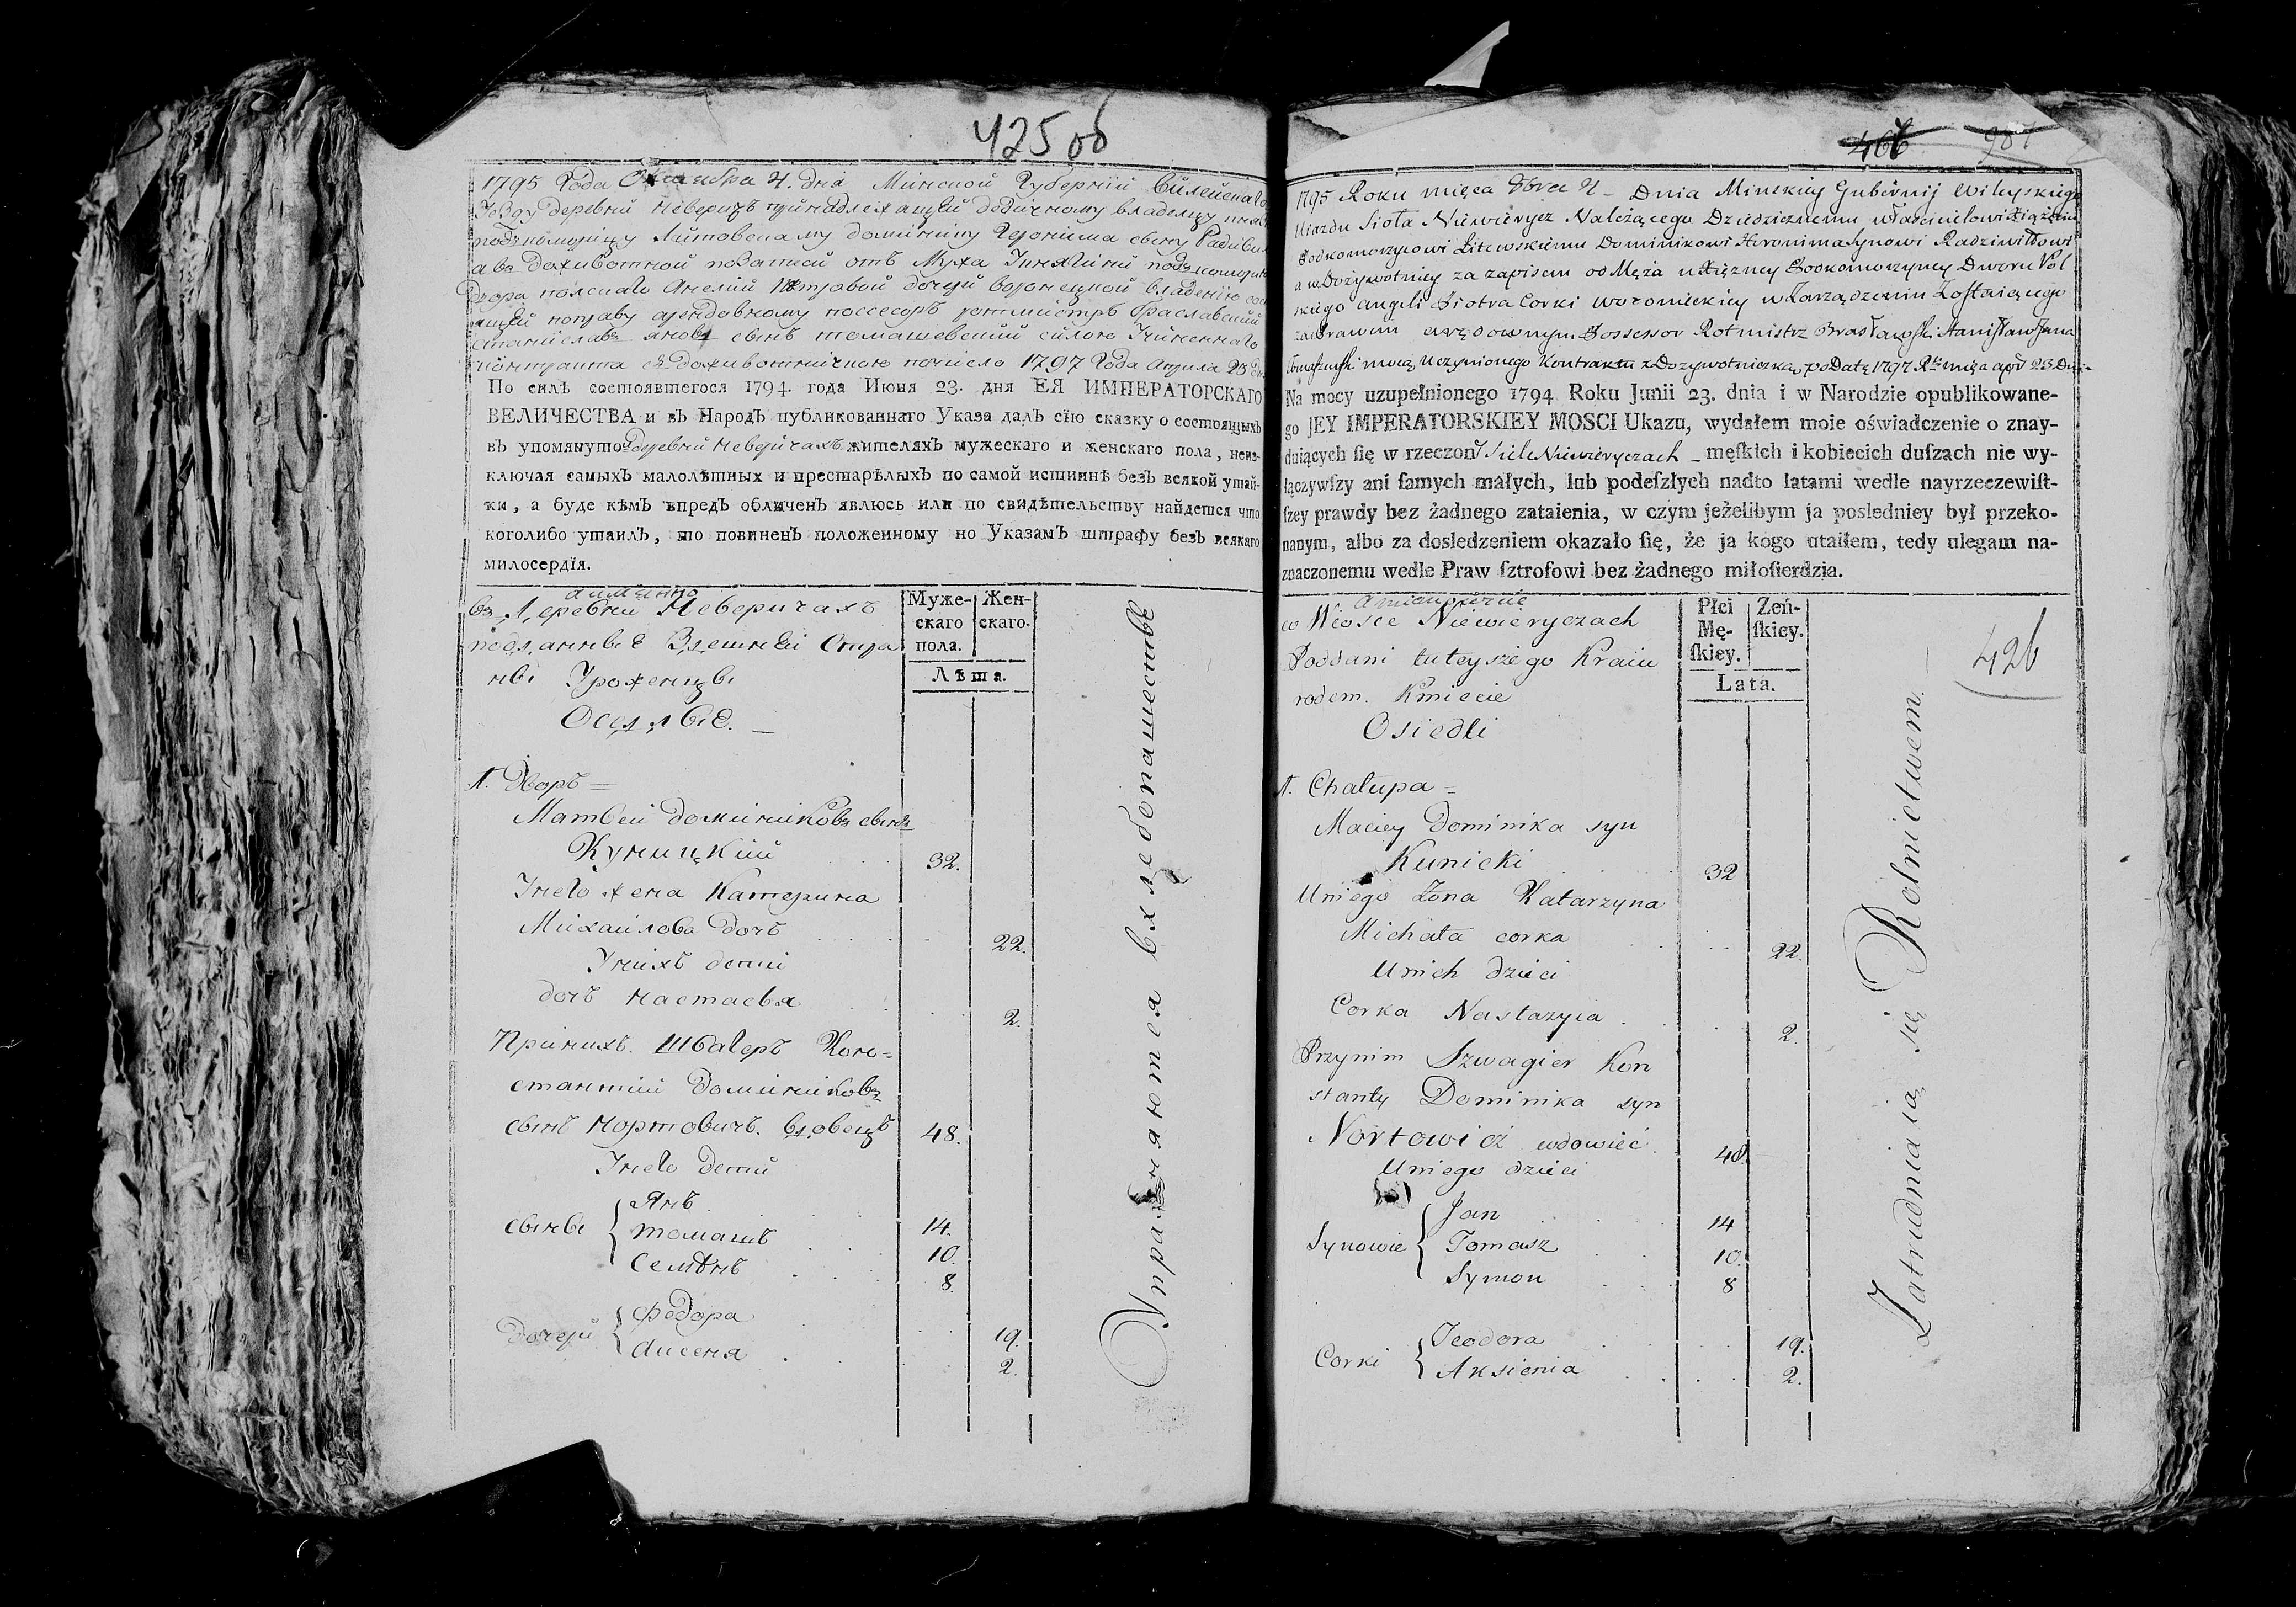 425 об
1795 Года Октября 4. дня Минской Губернїи Вилейскаго
Уезду деревни Неверичъ принадлежащей дедичному владелцу
подкоморїцу Литовскому доминику Геронима сыну Радивил
а въ доживотной позаписи отъ Мужа Княгини подкоморин
Двора полскаго Анелїи Петровой дочери воронецкой владенїю
ащей по праву арендовному поссесоръ ротмистръ Браславский
станиславъ яновъ сынъ томашевский силою Учиненнаго
контракта съ доживотничкою початого 1797 Года Апрыла 23 дн
По силѣ состоявшегося 1794. года Июня 23. дня ЕЯ ИМПЕРАТОРСКАГО
ВЕЛИЧЕСТВА и въ Народъ публикованнаго Указа далъ сїю сказку о состоящихъ
въ упомянуто деревни Неверичахъ жителяхъ мужескаго и женскаго пола, неиз-
ключая самыхъ малолѣтныхъ и престарѣлыхъ по самой истиннѣ безъ всякой утай-
ки, а буде кѣмъ впредь обличенъ явлюсь или по свидѣтельству найдется что
коголибо утаилъ, то повиненъ положенному по Указамъ штрафу безъ всякаго
милосердїя.
а имянно
въ Деревни Неверичахъ
подданные Здешней Стра
ны Уроженцы
Оседлые. —
Муже-
скаго
пола.
Жен-
скаго.
Лѣта.
1. Дворъ =
Матвей доминиковъ сынъ
Куницкий 32.
Унего жена Катерина
Михайлова дочъ 22.
Унихъ дети
дочъ Настасья 2.
Принихъ. Швагеръ Кон=
стантий доминиковъ
сынъ Нортовичъ. вдовецъ 48.
Унего дети
сыны { Янъ 14.
Томашъ 10.
Семёнъ 8.
дочери { Федора 19.
Аксеня 2.
Упражняются в хлебопашестве
466 987
1795 Roku mięca 8bra 4 - Dnia Minskiey Gubernij Wileyskiego
Ujazdu Siola Niewierycz Należącego Dziedzicznemu właścicielowi Xiążęciu
Podkomorzycowi Litewskiemu Dominikowi Hieronima Synowi Radziwiłłowi
a w Dożywotniey za zapisem od Męża u Xiężney Podkomorzyney Dworu Pol
skiego Angeli Piotra Corki woronieckiey w Zarządzeniu Zostaiącego
za Prawem arędownym Possessor Rotmistrz Brasławski Stanisław Jana
Tomaszewski mocą uczynionego Kontraktu z Dożywotniczką po Datę 1797 Rku mięa apr 23 Dnia
Na mocy uzupełnionego 1794 Roku Junii 23. dnia i w Narodzie opublikowane-
go JEY IMPERATORSKIEY MOSCI Ukazu, wydałem moie oświadczenie o znay-
duiących ſię w rzeczon Siele Niewieryczach – męſkich i kobiecich duſzach nie wy-
łączywſzy ani ſamych małych, lub podeſzłych nadto latami wedle nayrzeczewiſt-
ſzey prawdy bez żadnego zataienia, w czym jeżelibym ja posledniey był przeko-
nanym, albo za dosledzeniem okazało ſię, że ja kogo utaiłem, tedy ulegam na-
znaczonemu wedle Praw ſztrofowi bez żadnego miłoſierdzia.
a mianowicie
w Wiosce Niewieryczach
Poddani tuteyszego Kraiu
rodem. Kmiecie
Osiedli
Płci
Mę-
ſkiey.
Zeń-
ſkiey.
Lata.
426
1. Chalupa =
Maciey Dominika syn
Kunicki 32
Uniego Żona Katarzyna
Michała corka 22.
Unich dzieci
Corka Nastazyia 2.
Przynim Szwagier Kon
stanty Dominika syn
Nortowicz wdowiec 48.
Uniego dzieci
Synowie { Jan 14
Tomasz 10.
Symon 8
Corki { Teodora 19.
Aksienia 2.
Zatrudniaią się Rolnictwem